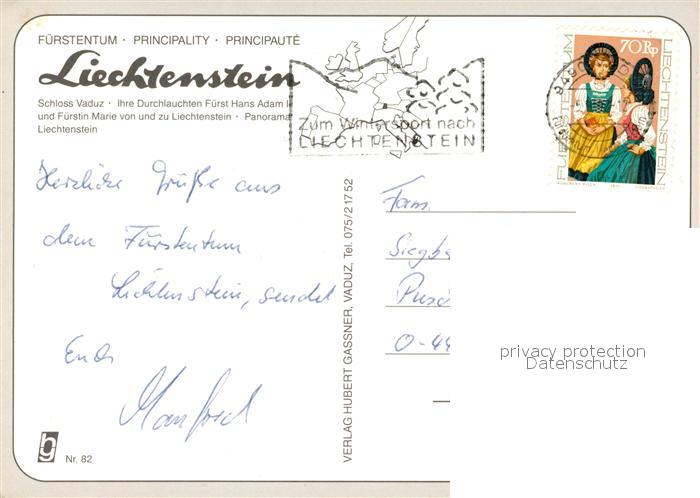 FÜRSTENTUM · PRINCIPALITY · PRINCIPAUTÉ
Liechtenstein
Schloss Vaduz · Ihre Durchlauchten Fürst Hans Adam II
und Fürstin Marie von und zu Liechtenstein · Panorama
Liechtenstein
Zum Wintersport nach
LIECHTENSTEIN
70 Rp
FÜRSTENTUM
LIECHTENSTEIN
9490
Herzliche Grüße aus
dem Fürstentum
Lichtenstein, sendet
Euch
Manfred
VERLAG HUBERT GASSNER, VADUZ, Tel. 075/21752
Fam.
Siegb
Pusc
O-44
privacy protection
Datenschutz
Nr. 82